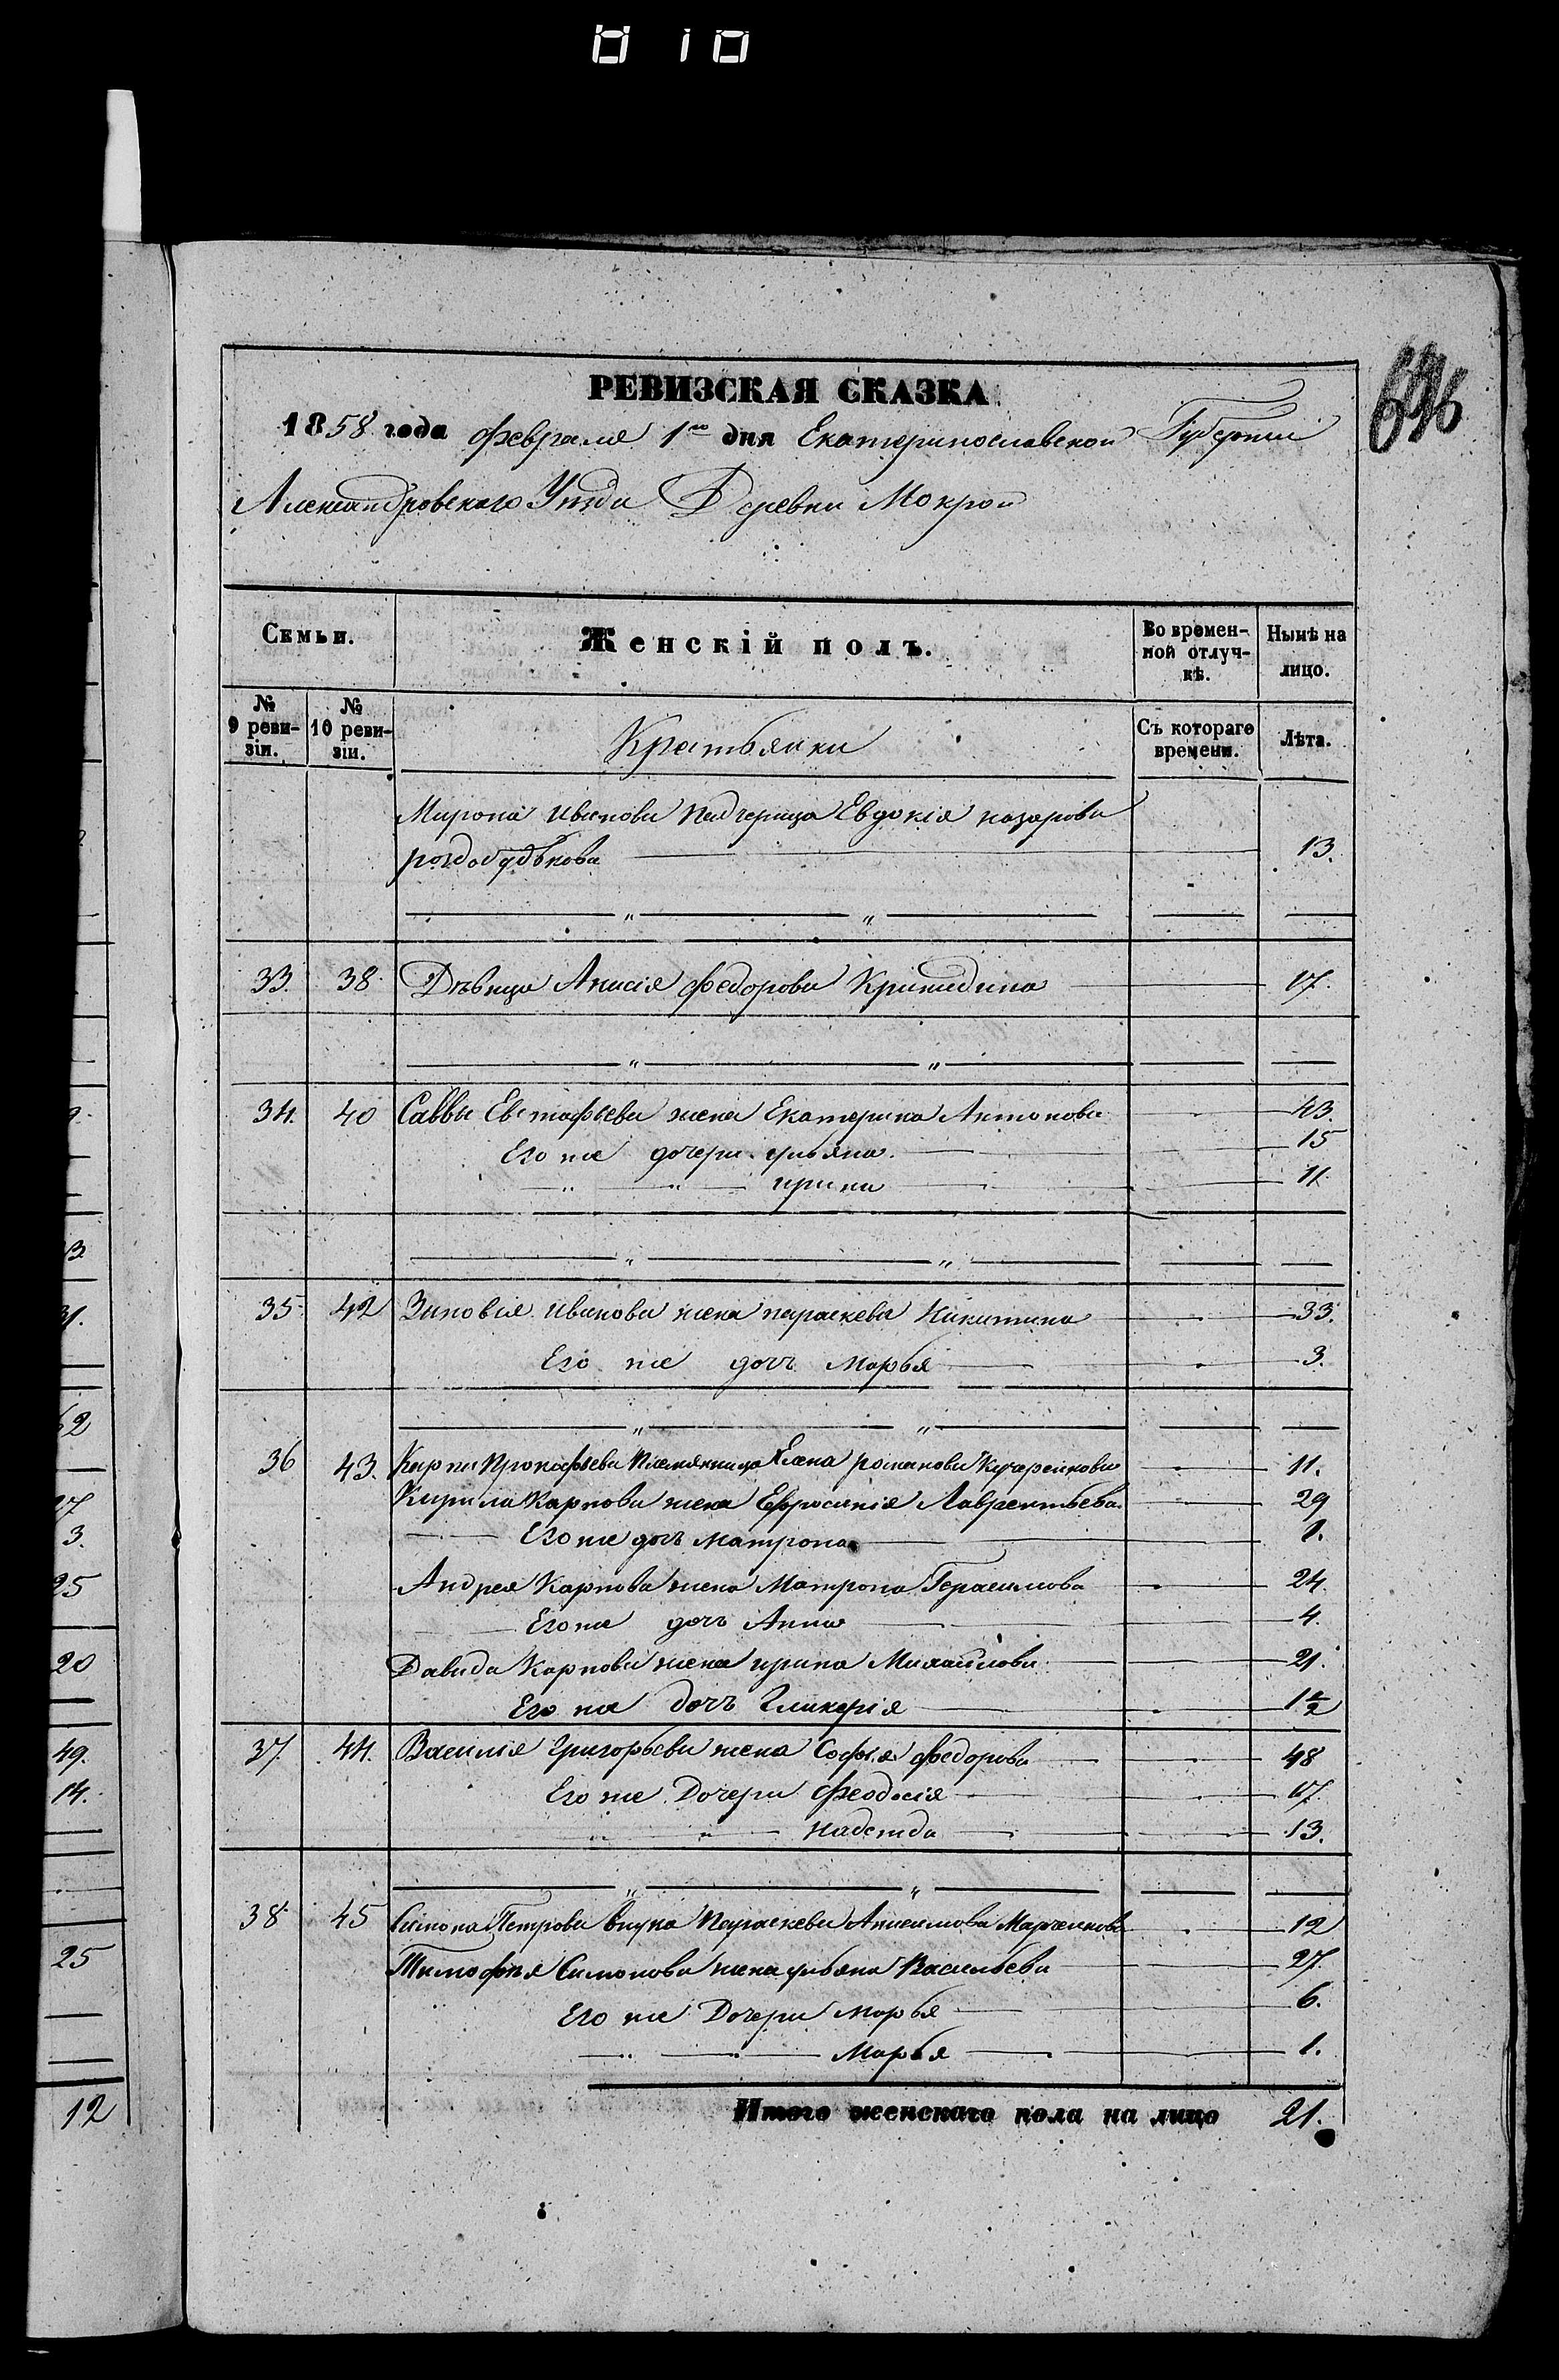 010
696
РЕВИЗСКАЯ СКАЗКА
1858 года февраля 1го дня Екатеринославской Губернии
Александровскаго Уезда Деревни Мокрой
Семьи.
Женскій полъ.
Во времен-
ной отлуч-
кѣ.
Нынѣ на
лицо.
№
9 реви-
зіи.
№
10 реви-
зіи.
Крестьянки
Съ котораго
времени.
Лѣта.
Мирона иванова падчерица Евдокія назарова
13.
33. 38. Дѣвица Анисія федорова 17.
34. 40 Саввы Евстафьева жена Екатерина Антонова 43.
Его же дочери ульяна. 15
ирина 11
35 42 Зиновія иванова жена параскева Никитина 33.
Его же дочь Марья 3.
36 43. Карпа Прокофьева Племянница Елена романова 11.
Кирила Карпова жена Ефросинія Лаврентьева 29
Его же дочь Матрона 1.
Андрея Карпова жена Матрона Герасимова 24.
Его же дочь Анна 4.
Давида Карпова жена ирина Михайлова 21.
Его же дочь Гликерія 1/2
37 44. Василія Григорьева жена Софія федорова 48
Его же Дочери Феодосія 17.
надежда 13.
38 45 Симона Петрова внука Параскева Анисимова Марченкова 12
Тимофея Симонова жена ульяна Васильева 27.
Его же Дочери марья 6.
Марья 1.
Итого женскаго пола на лицо 21.